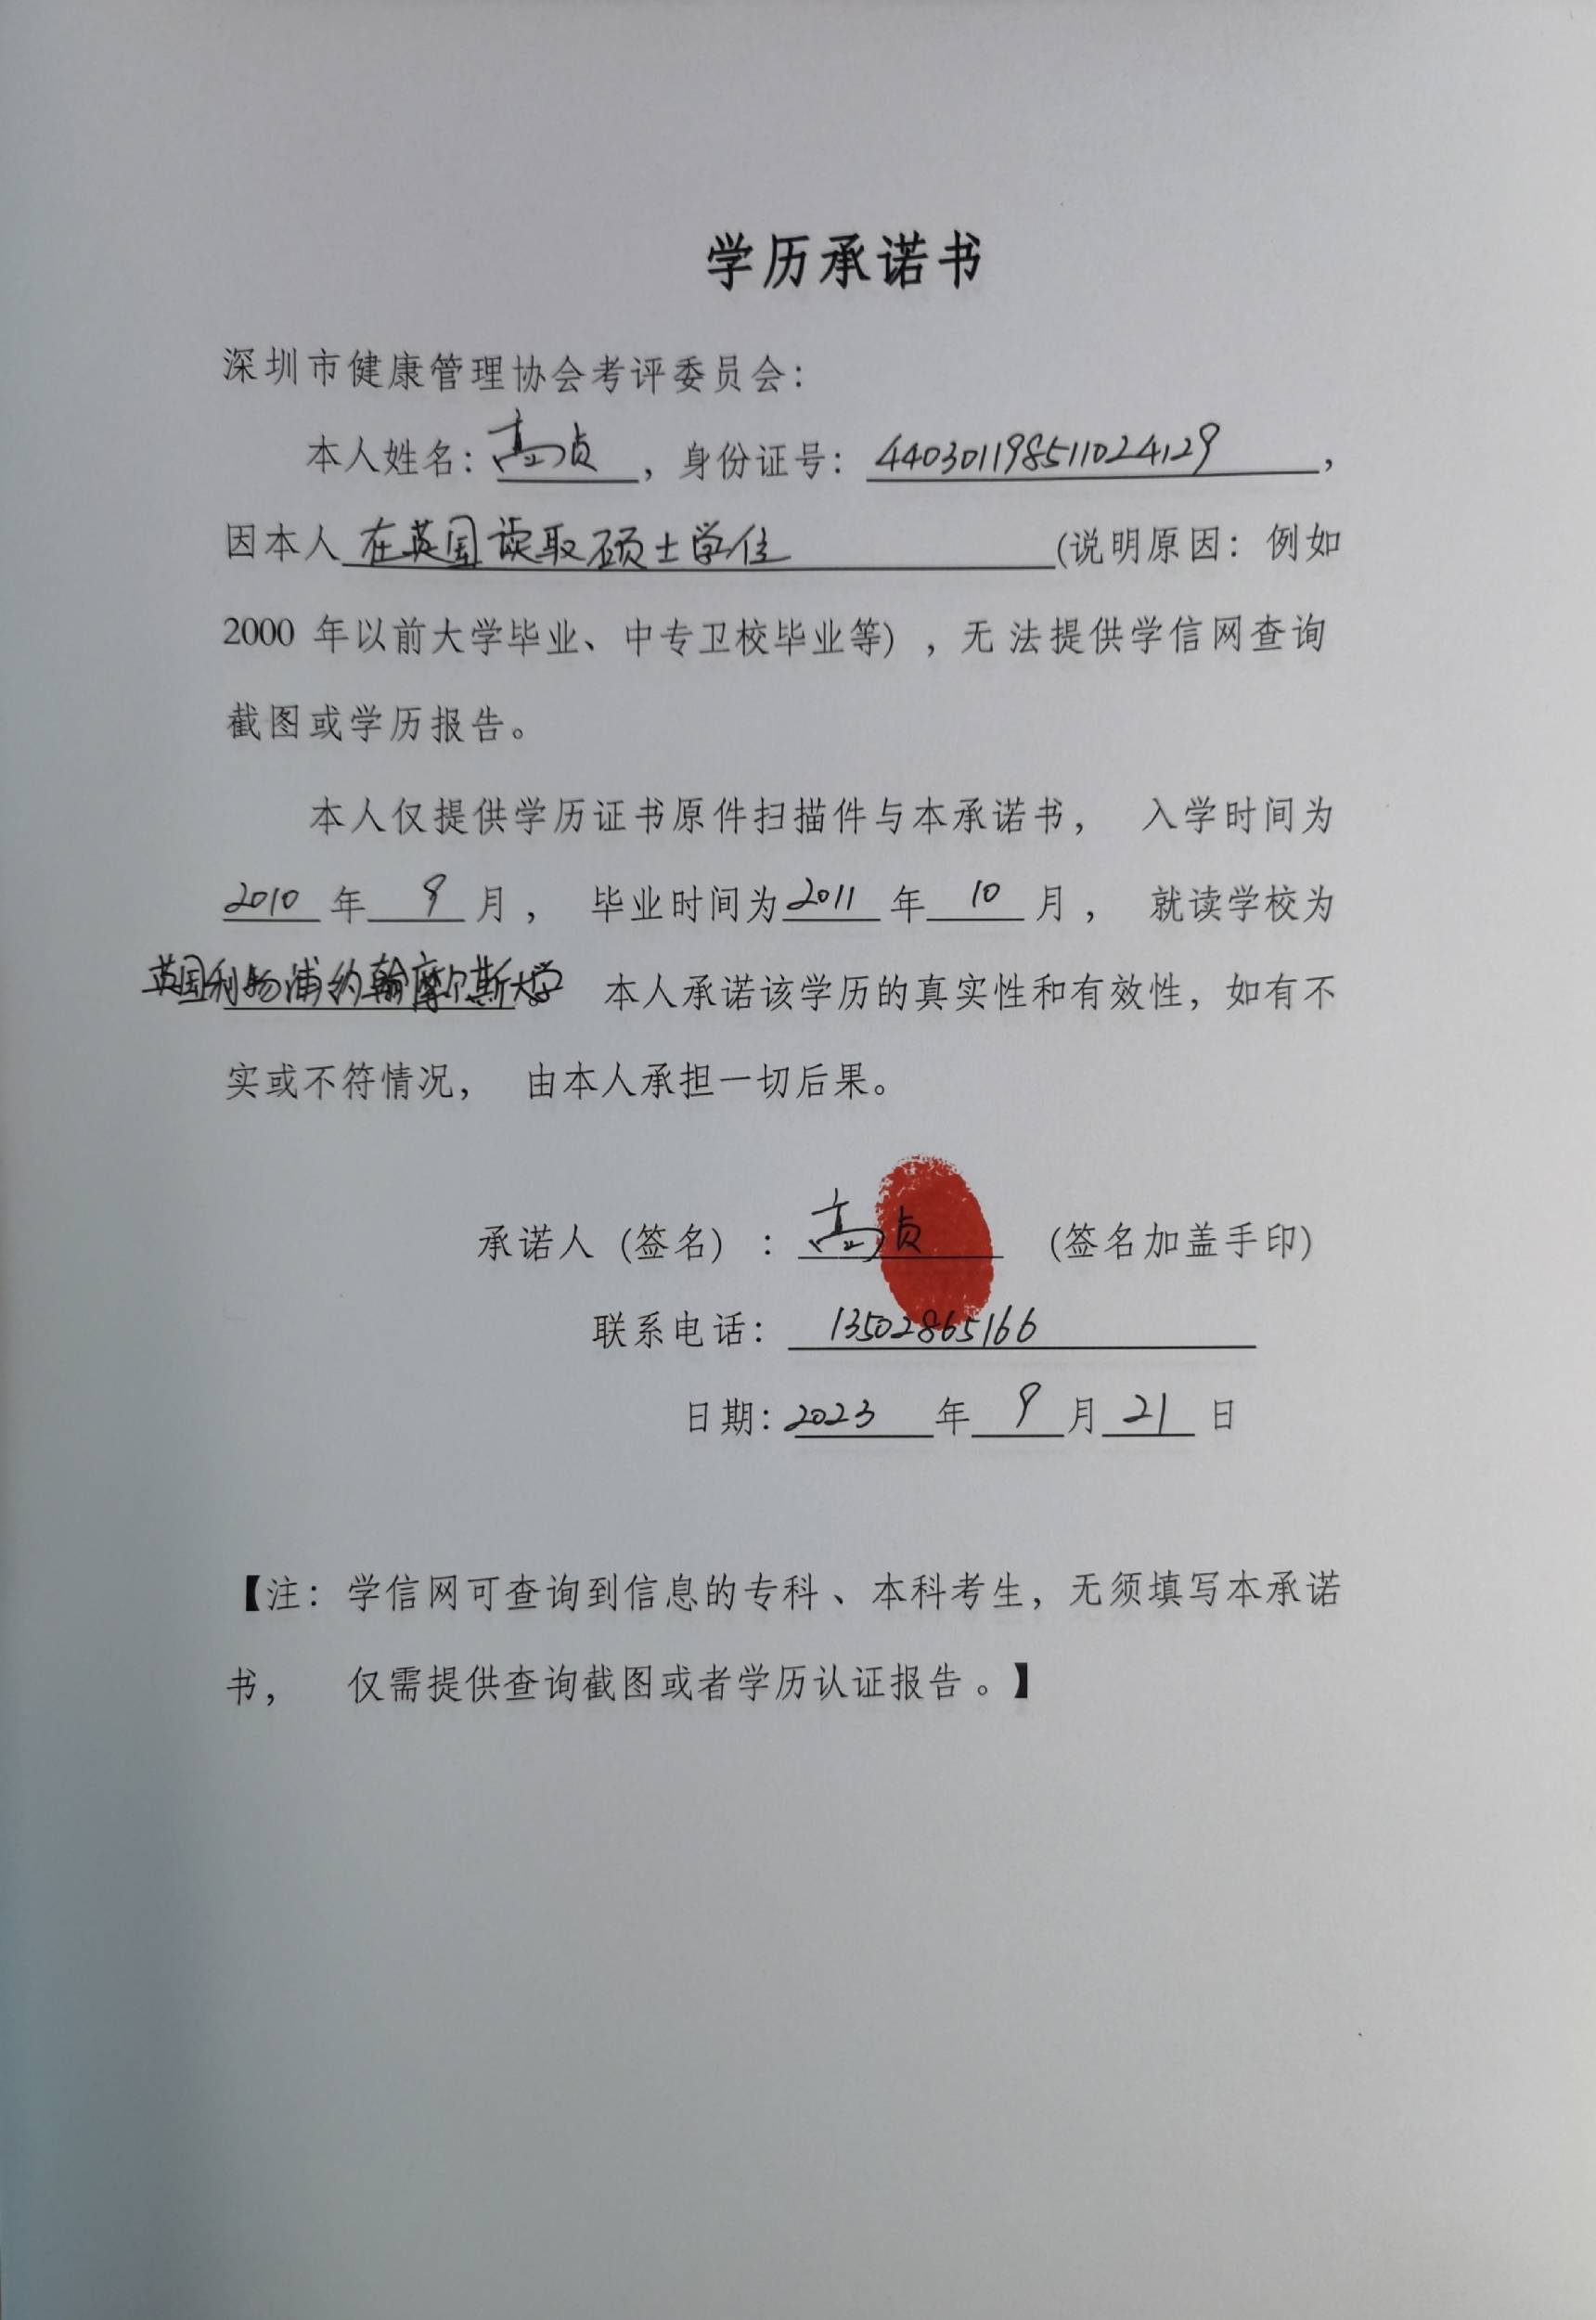 学历承诺书
深圳市健康管理协会考评委员会：
本人姓名：高贞，身份证号：440301198511024129，
因本人在英国读取硕士学位(说明原因：例如
2000 年以前大学毕业、中专卫校毕业等)，无法提供学信网查询
截图或学历报告。
本人仅提供学历证书原件扫描件与本承诺书， 入学时间为
2010 年 9 月， 毕业时间为 2011 年 10 月， 就读学校为
英国利物浦约翰摩尔斯大学。 本人承诺该学历的真实性和有效性，如有不
实或不符情况， 由本人承担一切后果。
承诺人 (签名) ：高贞 (签名加盖手印)
联系电话： 13502865166
日期：2023 年 9 月 21 日
【注：学信网可查询到信息的专科、本科考生，无须填写本承诺
书， 仅需提供查询截图或者学历认证报告。】